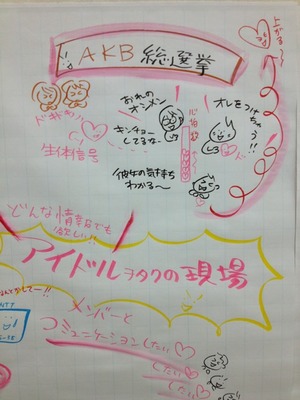 上がる〜
AKB 総選挙
ドキドキ
生体信号
おれの
オシメン
キンチョー
してるな。
心拍数
オレもつけちゃう!!
彼女の気持ち
わかる〜
どんな情報でも
欲しい!!
アイドルヲタクの現場
メンバーと
コミュニケーションしたい
したい
したい